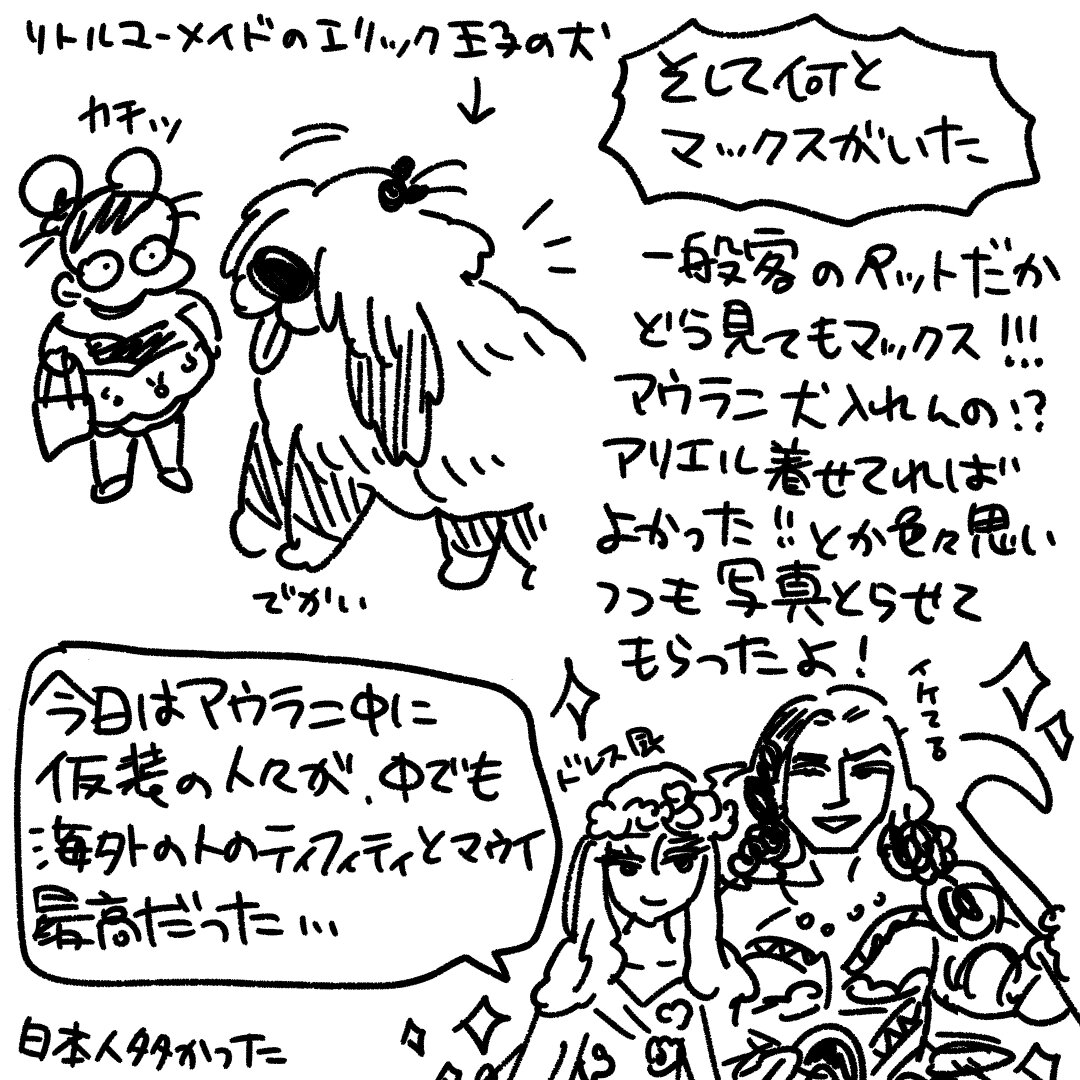 リトルマーメイドのエリック王子の犬
カチッ
そして何と
マックスがいた
一般客のペットだか
どら見てもマックス!!!
アウラニ犬入れんの!?
アリエル着せてれば
よかった!!とか色々思い
つつも写真とらせて
もらったよ!
でかい
今日はアウラニ中に
仮装の人々が、中でも
海外の人のティフィティとマウイ
最高だった…
ドレス風
イケてる
日本人多かった